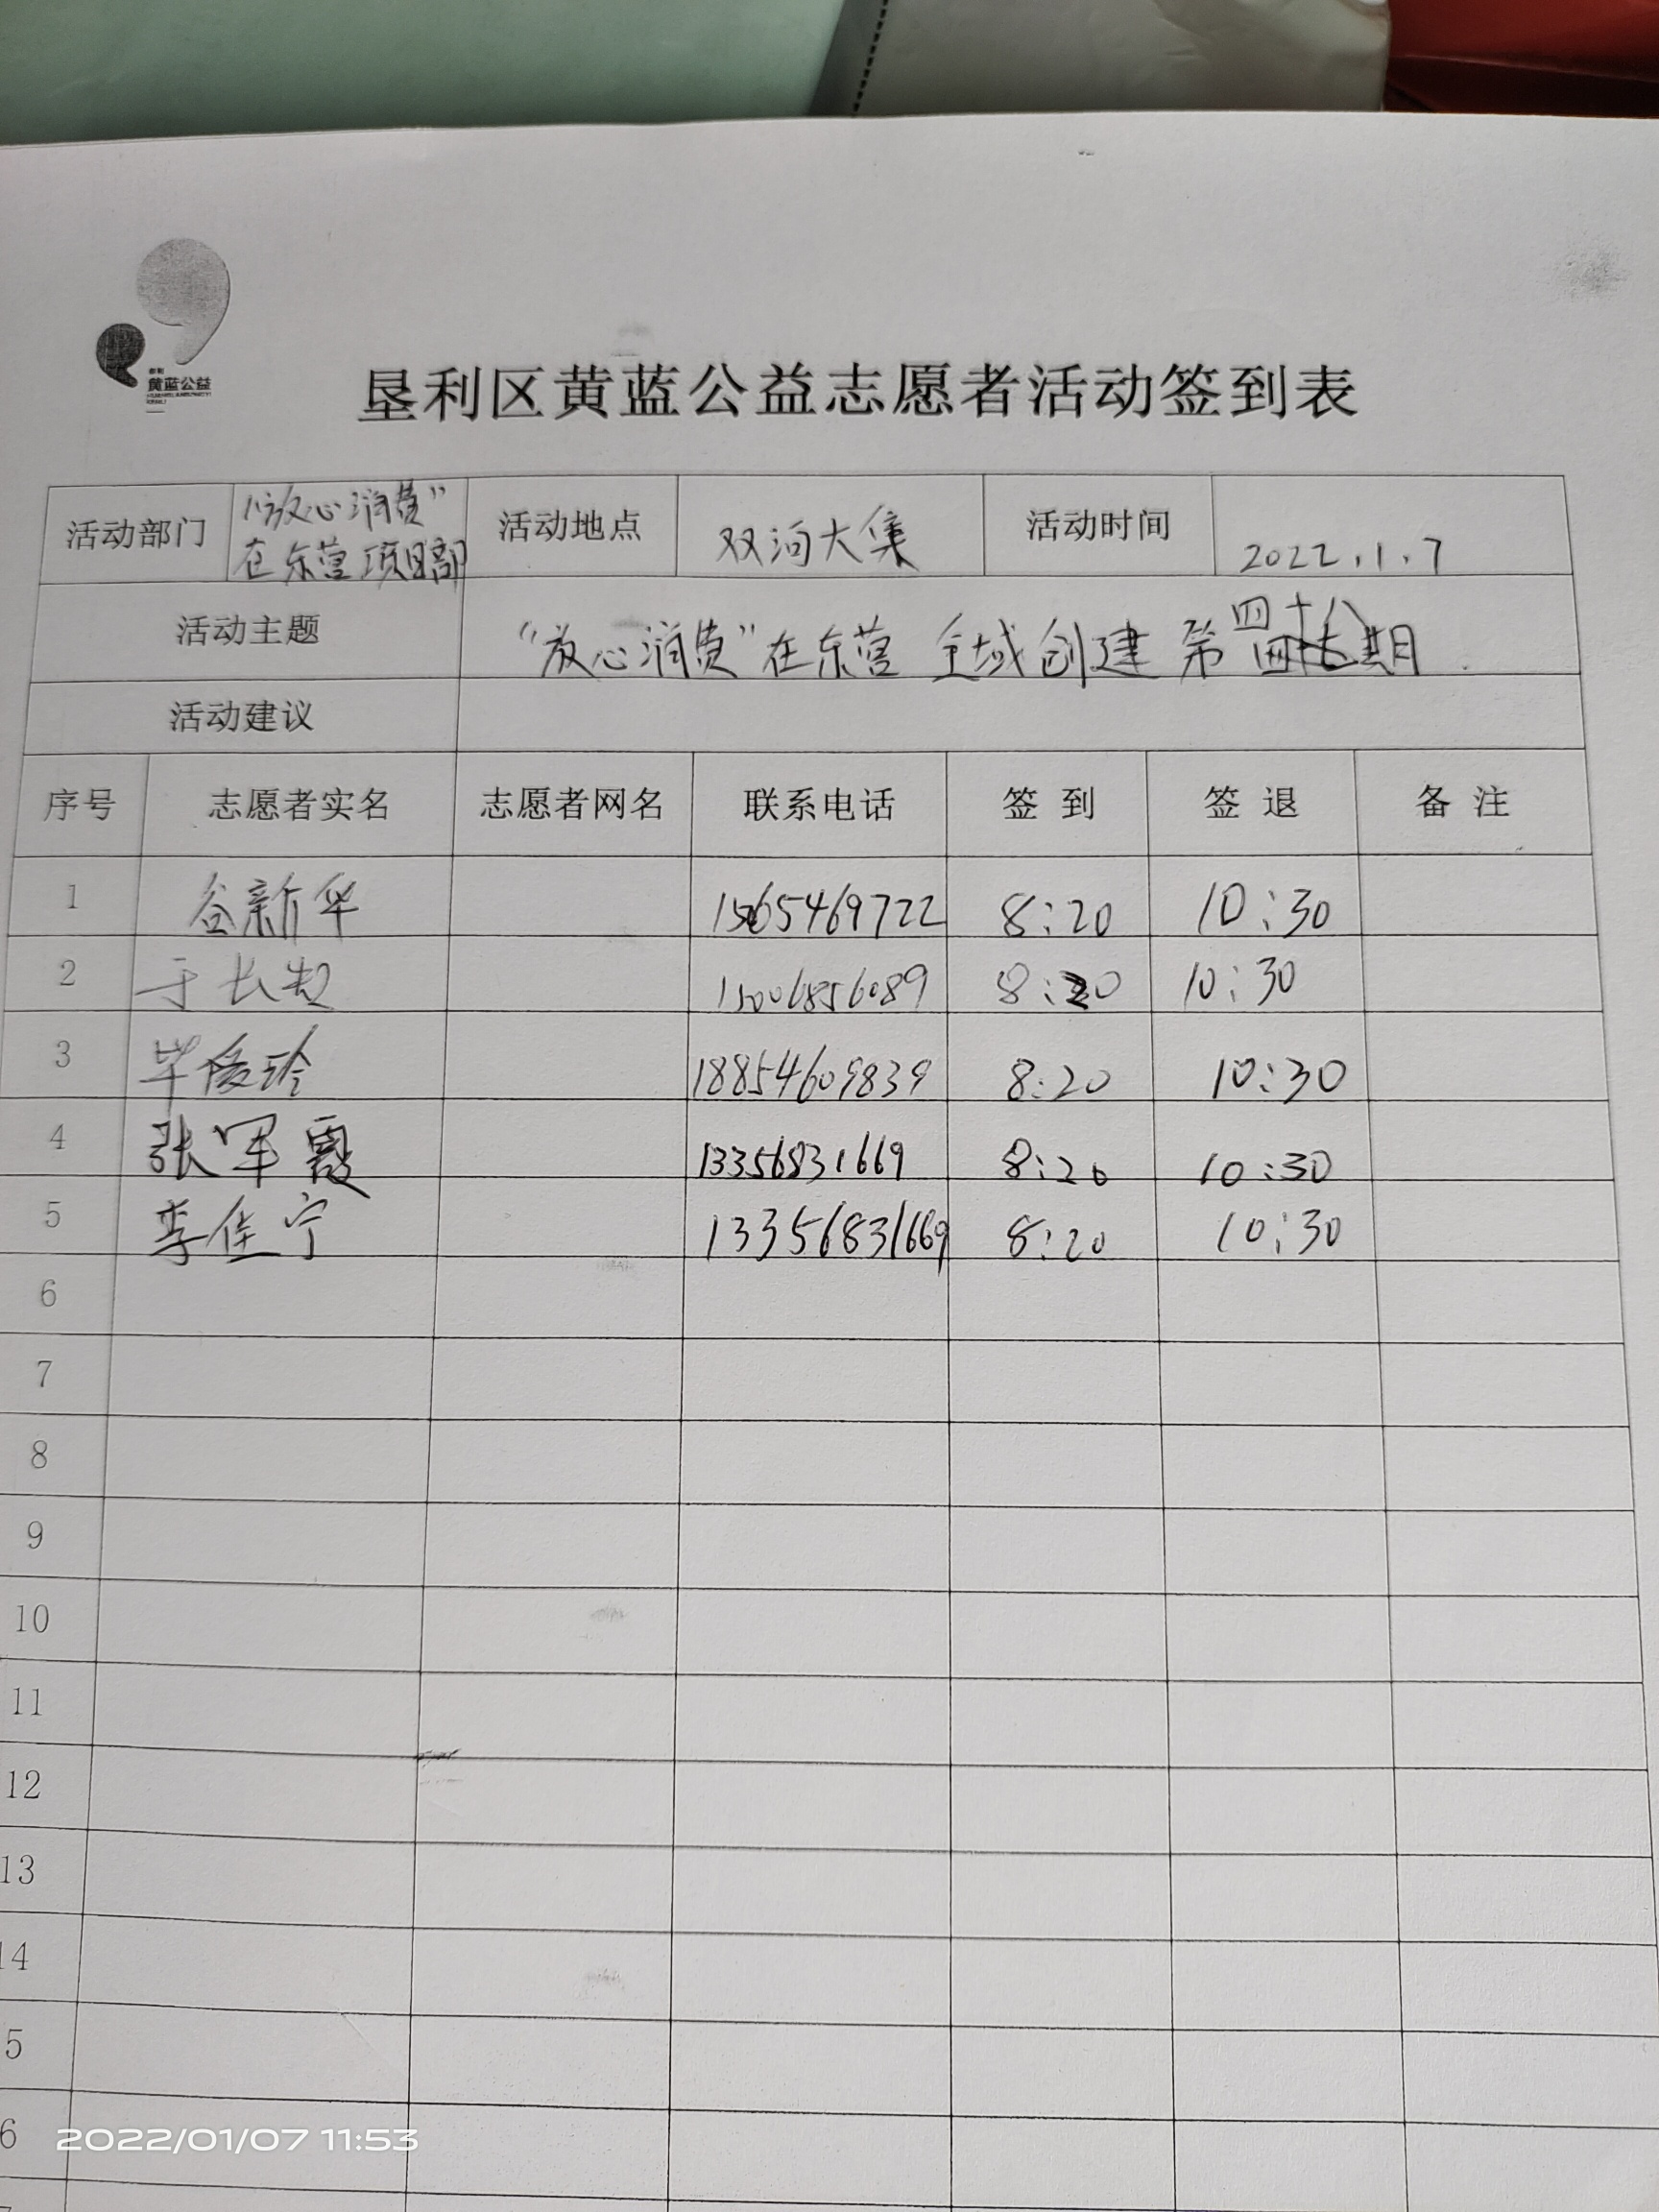 黄蓝公益
垦利区黄蓝公益志愿者活动签到表
活动部门 "放心消费" 在东营项目部 活动地点 双河大集 活动时间 2022.1.7
活动主题 "放心消费"在东营 全域创建 第四十八期
活动建议
序号 志愿者实名 志愿者网名 联系电话 签到 签退 备注
1 谷新华 1565469722 8:20 10:30
2 于长 15006856089 8:20 10:30
3 毕俊玲 18854609839 8:20 10:30
4 张军霞 13356831669 8:20 10:30
5 李佳宁 13356831669 8:20 10:30
6
7
8
9
10
11
12
13
14
5
6
2022/01/07 11:53